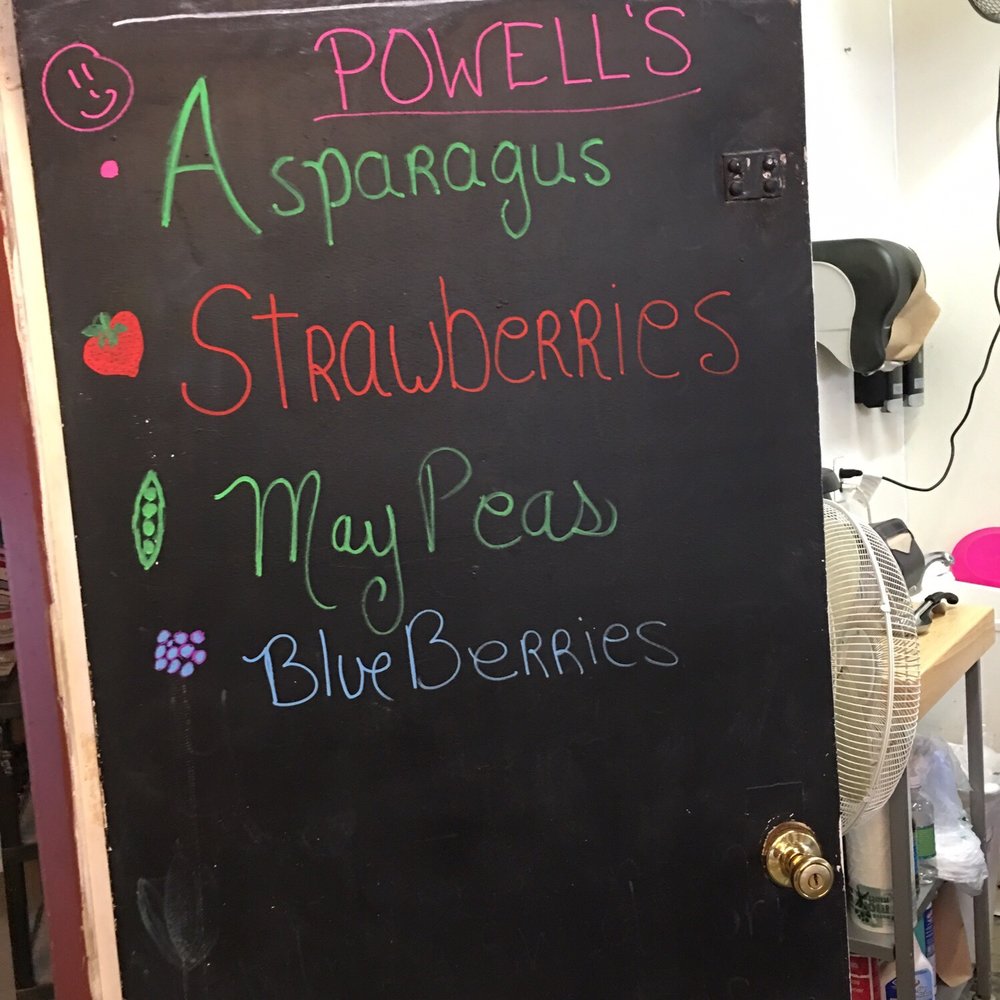 POWELL'S
Asparagus
Strawberries
May Peas
BlueBerries